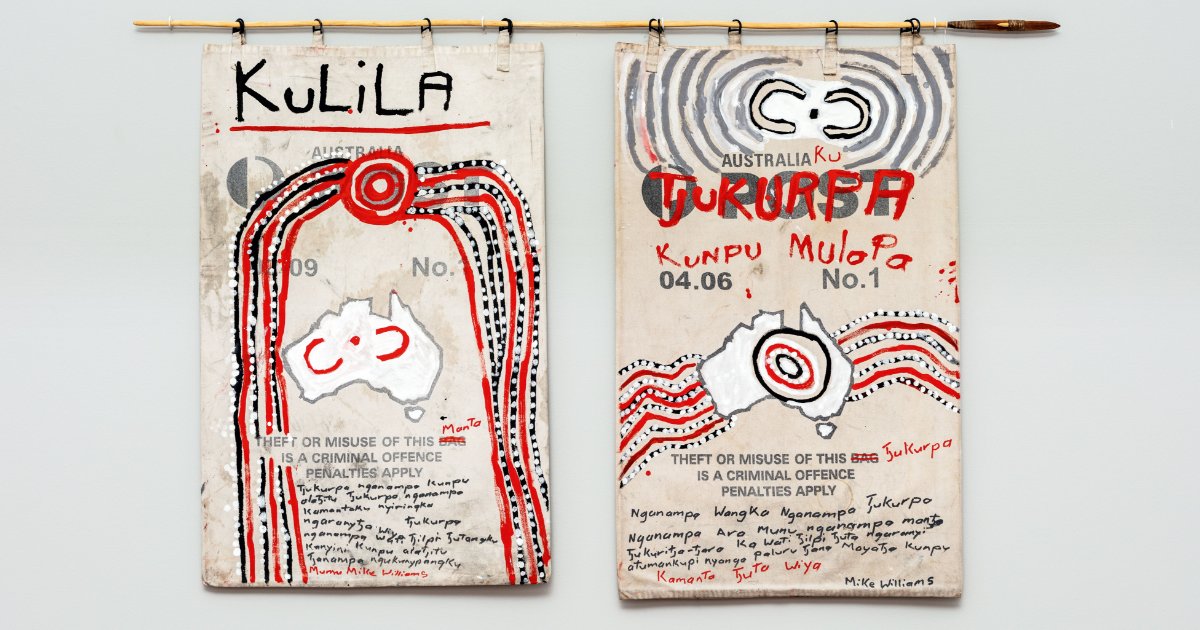 KULILA
AUSTRALIA
09
No.
Manta
THEFT OR MISUSE OF THIS BAG
IS A CRIMINAL OFFENCE
PENALTIES APPLY
Tjukurpa nganampa kunpu
alatjitu Tjukurpa nganampa
Kamantaku nyiringka
ngarantja wiya Tjukurpa
nganampa wati tjilpi tjutangku
Kanyini Kunpu alatjitu
Tjanampa ngukunypangku
Mumu Mike Williams
AUSTRALIA Ku
POST
TjUKURPA
KUNPU MulaPa
04.06 No.1
THEFT OR MISUSE OF THIS BAG Tjukurpa
IS A CRIMINAL OFFENCE
PENALTIES APPLY
Nganampa Wangka Nganampa Tjukurpa
Nganampa Ara Munu nganampa manta
Tjukuritja-tjara Ka Wati Tjilpi Tjuta ngaranyi
atumankupi nyanga paluru tjana Mayatja Kunpu
Kamanta Tjuta wiya
Mike Williams